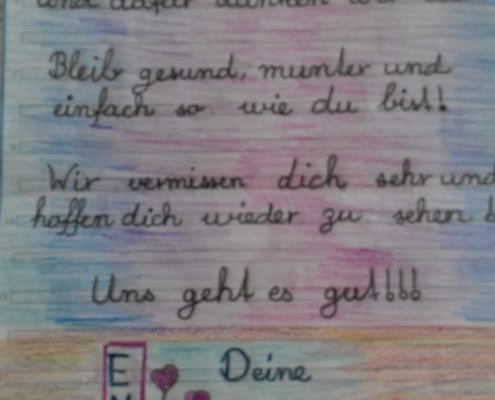 und dafür danken wir
Bleib gesund, munter und
einfach so wie du bist!
Wir vermissen dich sehr und
hoffen dich wieder zu sehen
Uns geht es gut!!!
E Deine